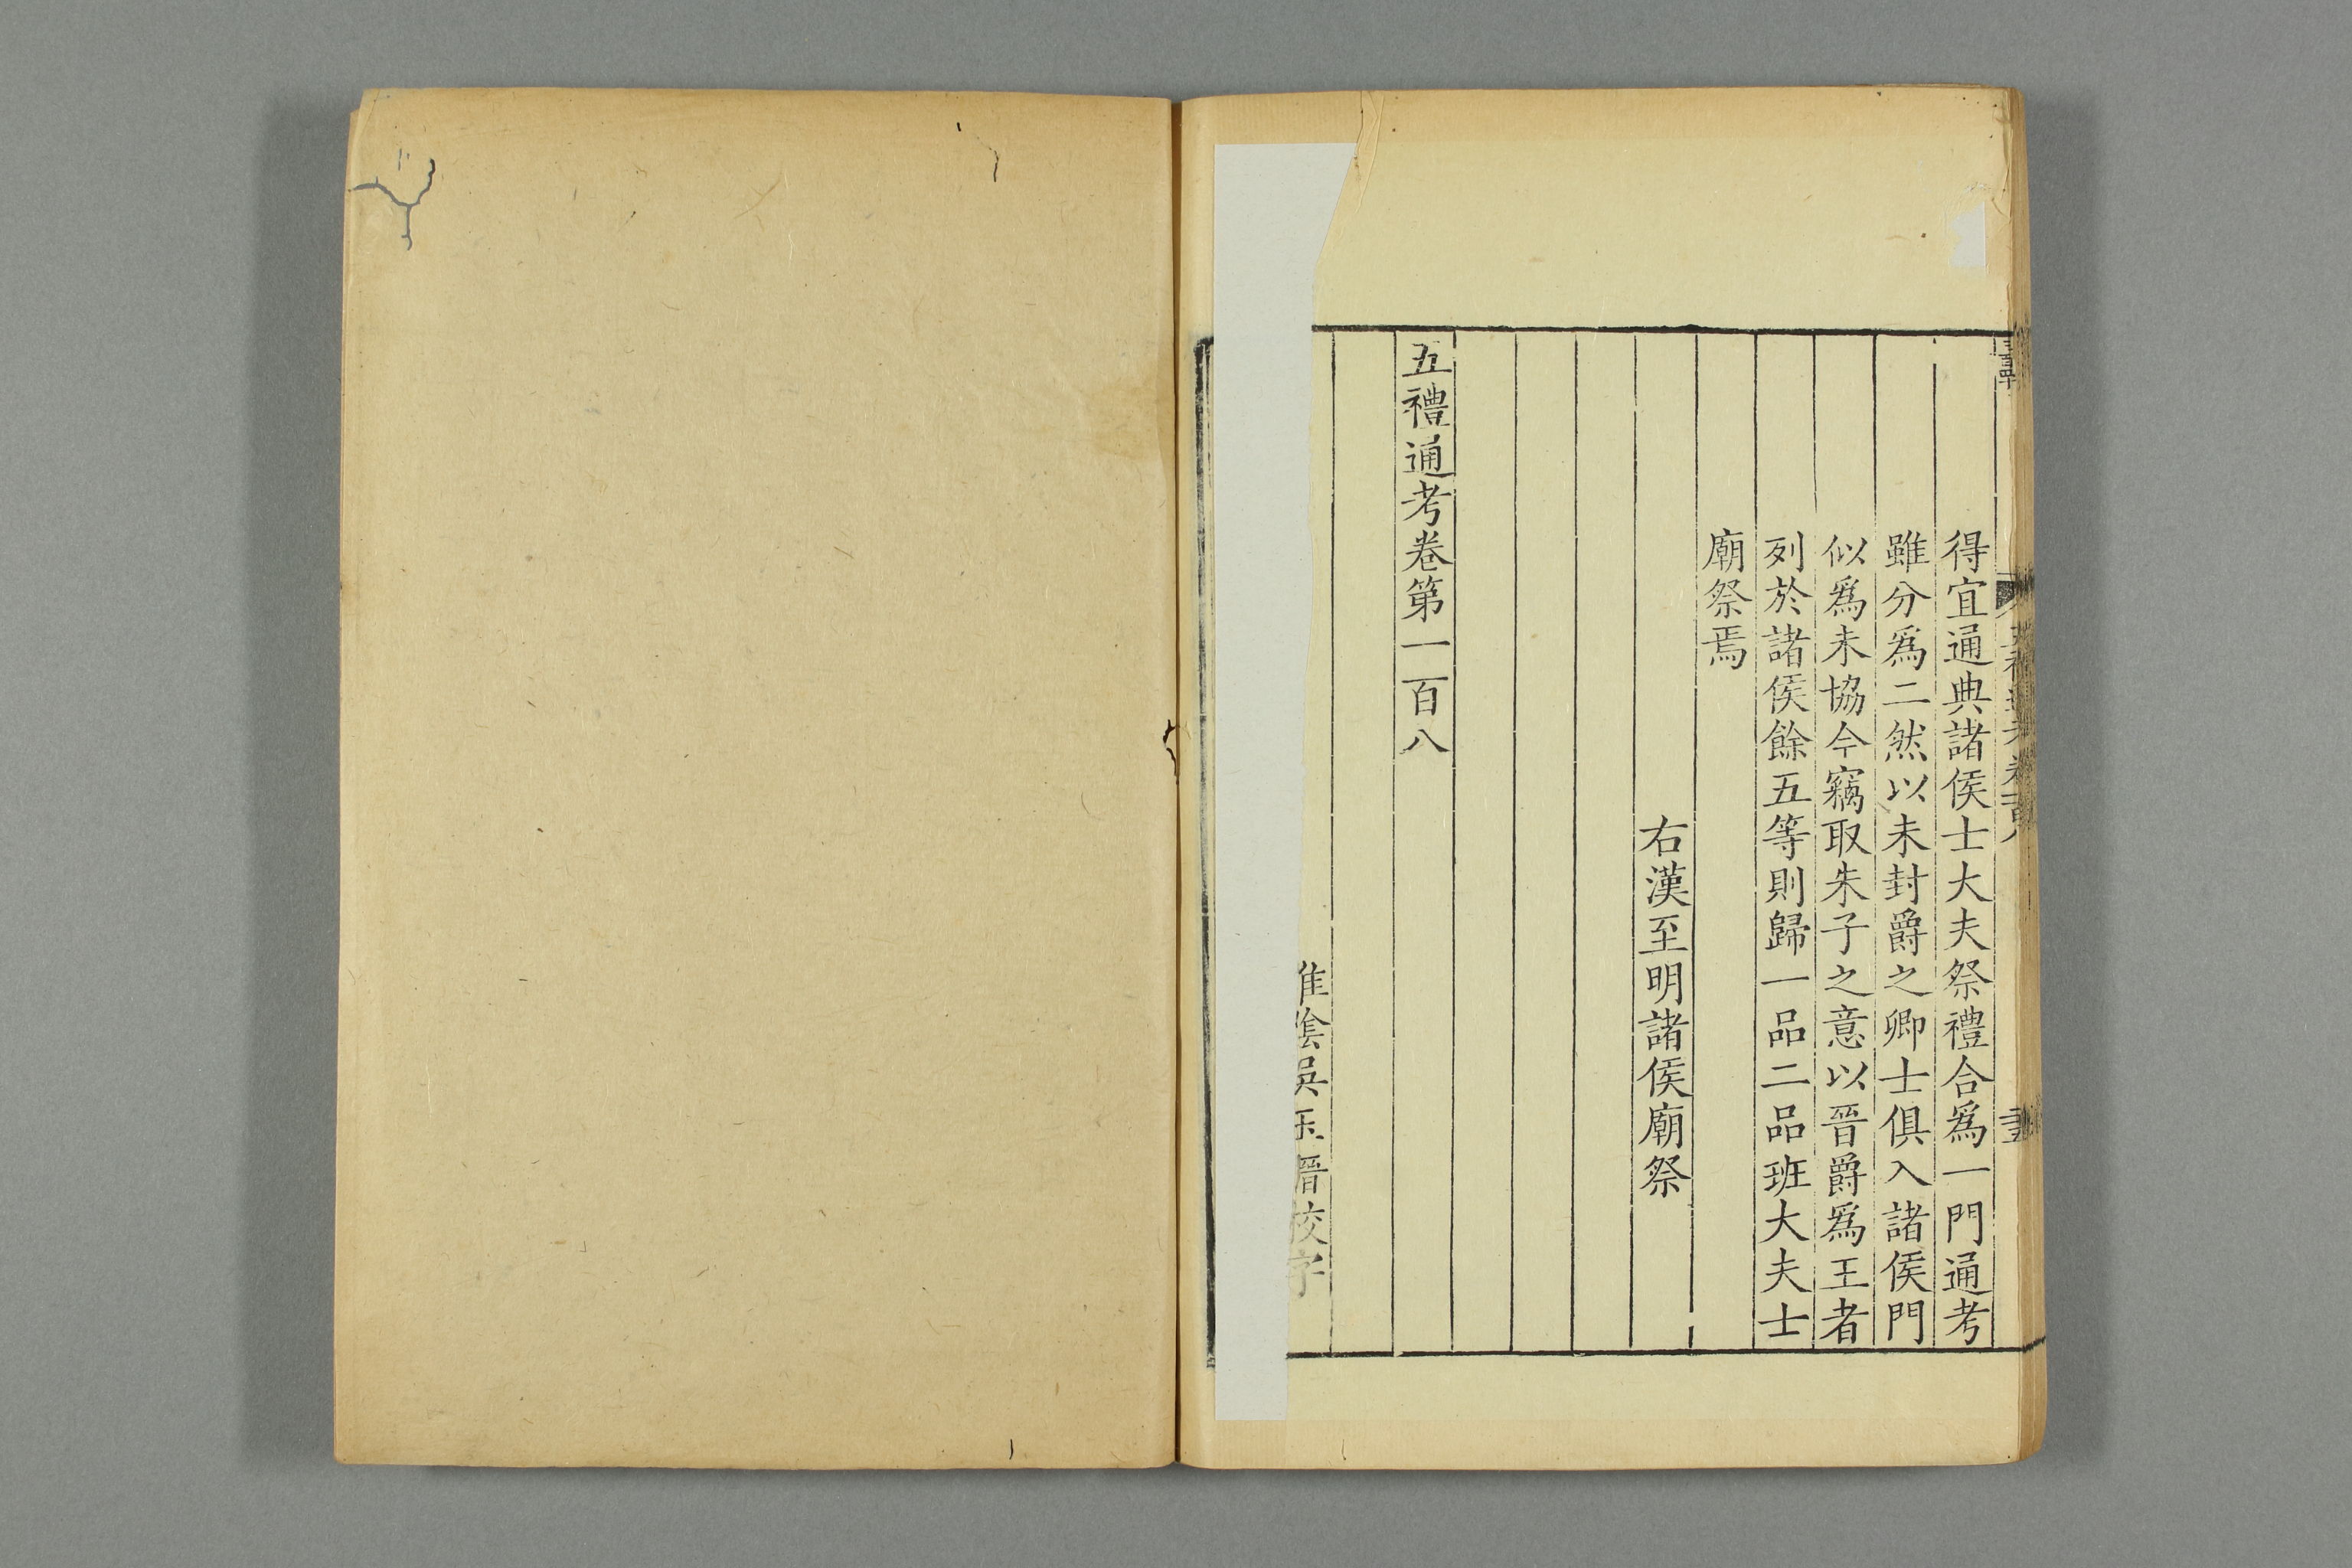 得宜通典諸侯士大夫祭禮合爲一門通考
雖分爲二然以未封爵之卿士俱入諸侯門
似爲未協今竊取朱子之意以晉爵爲王者
列於諸侯餘五等則歸一品二品班大夫士
廟祭焉
右漢至明諸侯廟祭
五禮通考卷第一百八
陰吳玉搢校字